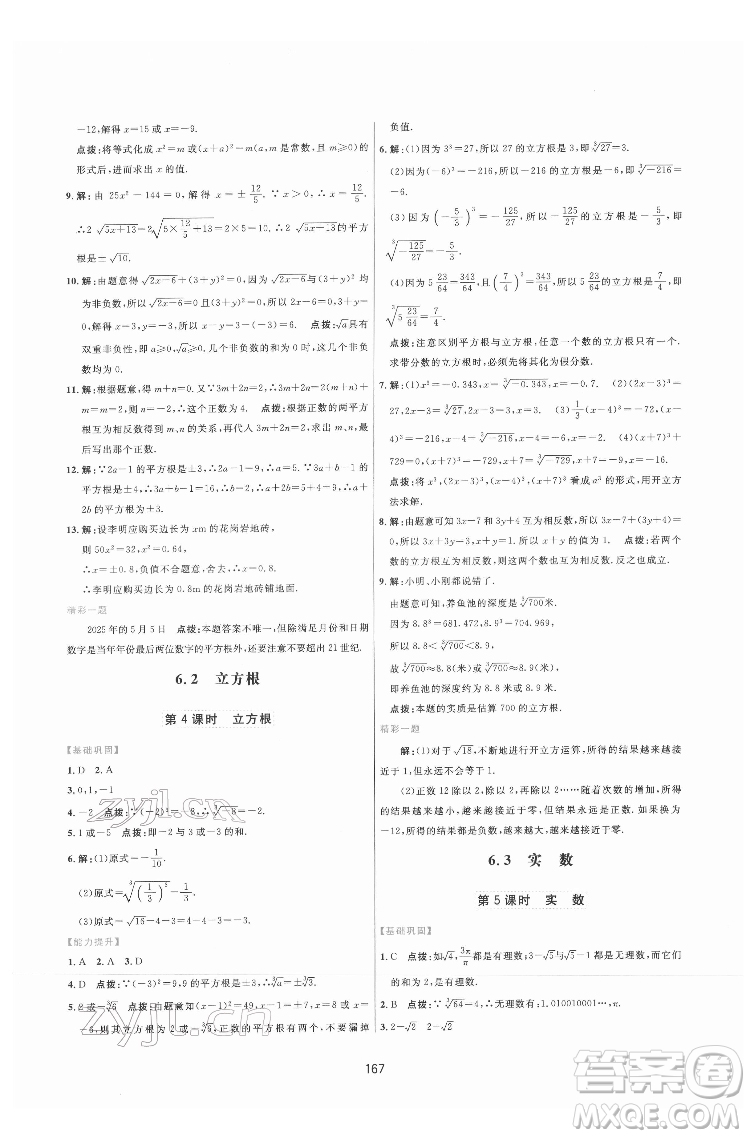 -12,解得 x=15 或 x=-9.
点拨:将等式化成 x²=m 或(x+a)²=m(a,m 是常数,且 m≥0)的
形式后,进而求出 x 的值.
9. 解:由 25x²-144=0,解得 x=±12/5. ∵x>0,∴x=12/5.
∴2√(5x+13)=2√(5×12/5+13)=2×5=10. ∴2√(5x+13)的平方
根是±√10.
10. 解:由题意可得√(2x-6)+(3+y)²=0. ∵√(2x-6)与(3+y)²均
为非负数,所以√(2x-6)=0 且(3+y)²=0. 所以 2x-6=0,3+y
=0. 所以 x=3,y=-3. 所以 x-y=3-(-3)=6. 点拨:√a具有
双重非负性,即 a≥0,√a≥0. 几个非负数的和为 0 时,这几个数
均为 0.
11. 解:根据题意,得 m+n=0. 又因为 2m+n=2,解得 m=2,n=
-2. 所以 m²=4,所以这个正数为 4. 点拨:根据正数的两平方
根互为相反数得到 m、n 的关系,再代入 2m+n=2 求出 m、n,最
后写出那个正数.
12. 解:∵2a-1 的平方根是±3,∴2a-1=9,∴a=5. ∵3a+b-1
的算术平方根是 4,∴3a+b-1=16,∴b=2,∴a+2b=9,∴a+
2b 的平方根为±3.
13. 解:设李明应购买边长为 xm 的花岗岩地砖,
则 50x²=32,∴x²=0.64,
∴x=±0.8,负值不合题意,舍去,∴x=0.8.
∴李明应购买边长为 0.8m 的花岗岩地砖铺地面.
精彩一题
2025 年的 5 月 5 日 点拨:本题答案不唯一,但除满足月份和日期
数字是当年年份最后两位数字的平方根外,还要注意不要超出 21 世纪.
6.2 立方根
第 4 课时 立方根
【基础巩固】
1. D 2. A
3. 0,1,-1
4. -2 点拨:∵(-2)³=-8,∴∛-8=-2.
5. 1 或-5 点拨:即±3 与-2 的和.
6. 解:(1)原式=-1/10.
(2)原式=∛(1/3)³=1/3.
(3)原式=√18-4=√9=3
【能力提升】
1. A 2. A 3. D
4. D 点拨:∵(-3)²=9,9 的平方根是±3,∴x=±3,∴
5. 2 或-∛6 点拨:由题意可知(x-1)²=49,∴x=8 或 x=
-6,则其立方根为 2 或-∛6,正数的平方根有两个,不要漏掉
负值.
6. 解:(1)因为 3³=27,所以 27 的立方根是 3,即∛27=3.
(2)因为(-6)³=-216,所以-216 的立方根是-6,即∛-216=
-6.
(3)因为(-5/3)³=-125/27,所以-125/27的立方根是-5/3,即
∛-125/27=-5/3.
(4)因为 5 23/64=343/64,且(7/4)³=343/64,所以 5 23/64的立方根是 7/4,即
∛5 23/64=7/4.
点拨:注意区别平方根与立方根,任何一个数的立方根只有一个.
求带分数的立方根时,必须先将其化为假分数.
7. 解:(1)x³=-0.343,x=∛-0.343,x=-0.7. (2)(2x-3)³=
27,2x-3=∛27,2x-3=3,2x=6,x=3. (3)1/3(x-4)³=-72,(x-
4)³=-216,x-4=∛-216,x-4=-6,x=-2. (4)(x+7)³+
729=0,(x+7)³=-729,x+7=∛-729,x+7=-9,x=-16.
点拨:将 x³,(2x-3)³,(x-4)³,(x+7)³分别看成 a³的形式,用开立方
法求解.
8. 解:由题意可知 3x-7 与 3y+4 互为相反数,所以 3x-7+3y+4
=0,所以 3x+3y-3=0,所以 x+y 的值为 1. 点拨:若两个数
的立方根互为相反数,则这两个数也互为相反数.
9. 解:小明、小刚都说错了.
由题意可知,养鱼池的深度是∛700米.
因为 8.8³=681.472,8.9³=704.969,
所以 8.8<∛700<8.9.
故∛700≈8.8(米)或∛700≈8.9(米).
即养鱼池的深度约为 8.8 米或 8.9 米.
点拨:本题的实质是估算 700 的立方根.
精彩一题
解:(1)对于√18,不断地进行开立方运算,所得的结果越来越接
近于 1.
(2)正数 12 除以 2,再除以 2……随着次数的增加,所得的结
果越来越小,所得结果都是正数,越来越接近于零. 如果换为
-12,所得的结果都是负数,越来越接近于零.
6.3 实 数
第 5 课时 实 数
【基础巩固】
1. C 点拨:如√4,3π/π都是有理数;3-√5与√5都是无理数,而它们
的和为 3,是有理数.
2. B 点拨:∵∛64=4,∴无理数有:1.010010001…,π.
3. 2-√2 2-√2
167
zyjl.cn
zyjl.cn
答案圈
MXQE.COM